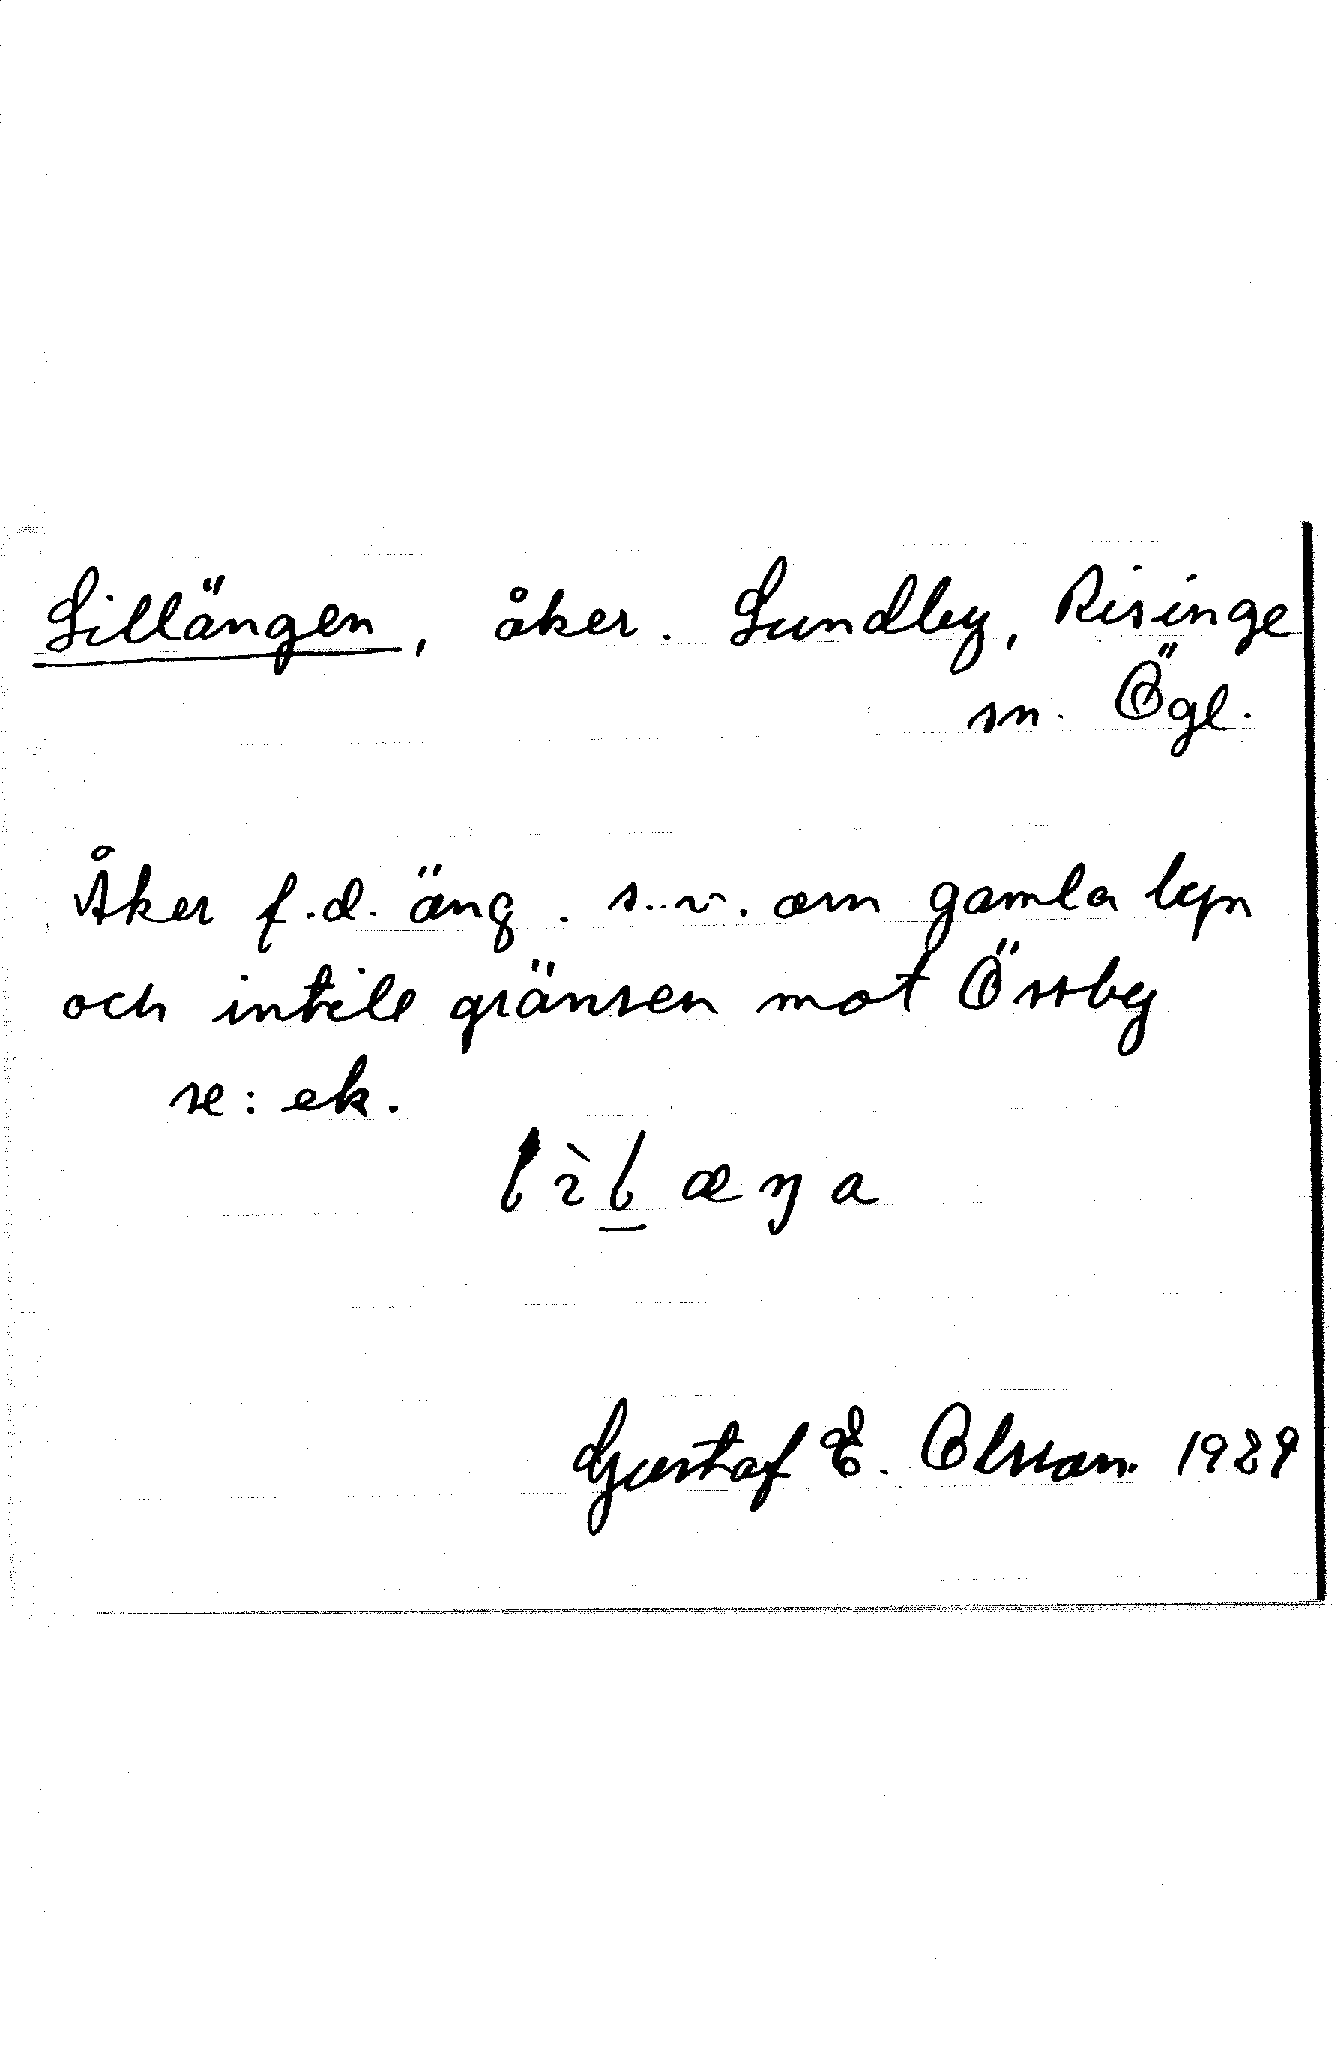 Lillängen, åker. Lundby, Risinge
sn. Ögl.
Åker f.d. äng. s.v. om gamla byn
och intill gränsen mot Össby
se: ek.
lìlæŋa
Gustaf E. Olsson. 1929